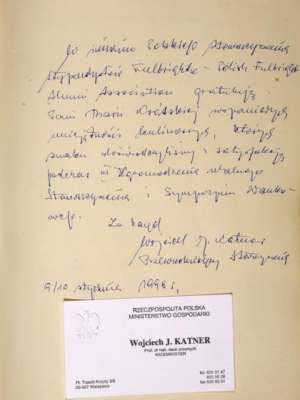 W imieniu Polskiego Stowarzyszenia
Stypendystów Fulbrighta - Polish Fulbright
Alumni Association gratuluję
Pani Marii wspaniałych
umiejętności kulinarnych, których
smaku doświadczyliśmy z satysfakcją
podczas III Zgromadzenia Walnego
Stowarzyszenia i Sympozjum Nauko-
wego.
Za Zarząd
Wojciech J. Katner
Przewodniczący Stowarzyszenia
9/10 stycznia 1998 r.
RZECZPOSPOLITA POLSKA
MINISTERSTWO GOSPODARKI
Wojciech J. KATNER
Prof. dr hab. nauk prawnych
WICEMINISTER
Pl. Trzech Krzyży 3/5
00-507 Warszawa